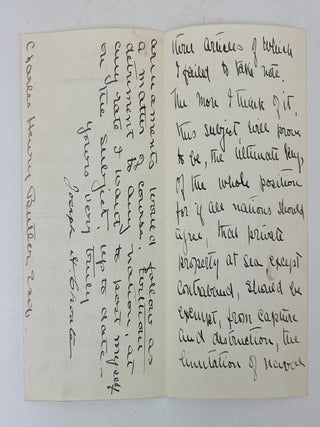 three articles of which
I failed to take note.
The more I think of it,
this subject will prove
to be, the ultimate key,
of the whole position
for if all nations should
agree, that private
property at sea except
contraband, should be
exempt, from capture
and destruction, the
limitation of naval
armaments would follow as
a matter of course, without
detriment to any nation, at
any rate I want to post myself
on the subject up to date—
Yours very truly
Joseph H. Choate
Charles Henry Butler Esq.